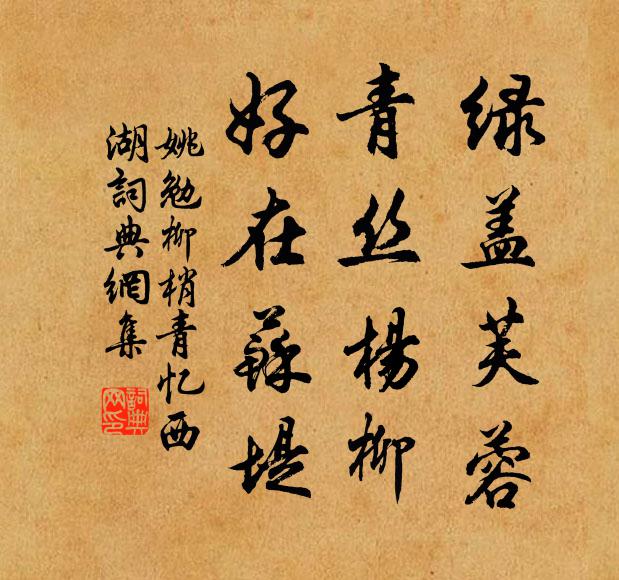 绿盖芙蓉
青丝杨柳
好在蘇堤
姚勉柳梢青忆西
湖詞典網集
詞典
网印